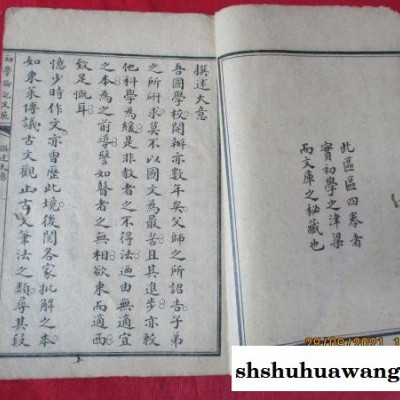 此區區四卷者
實初學之津梁
而文庫之秘藏也
撰述大意
吾國學校開辦亦數年矣父師之所詔告子弟
之所研求莫不以國文為最苦且其進步亦較
他科學為緩是非教者之不得法適由無適宜
之本為之前導譬如瞽者之無相欲東而適西
歟足慨耳
憶少時作文亦曾歷此境後閱各家批解之本
如東萊博議古文觀止古文筆法之類尋其段
初學論說文範
撰述大意
29/09/2021
shshuhuawang